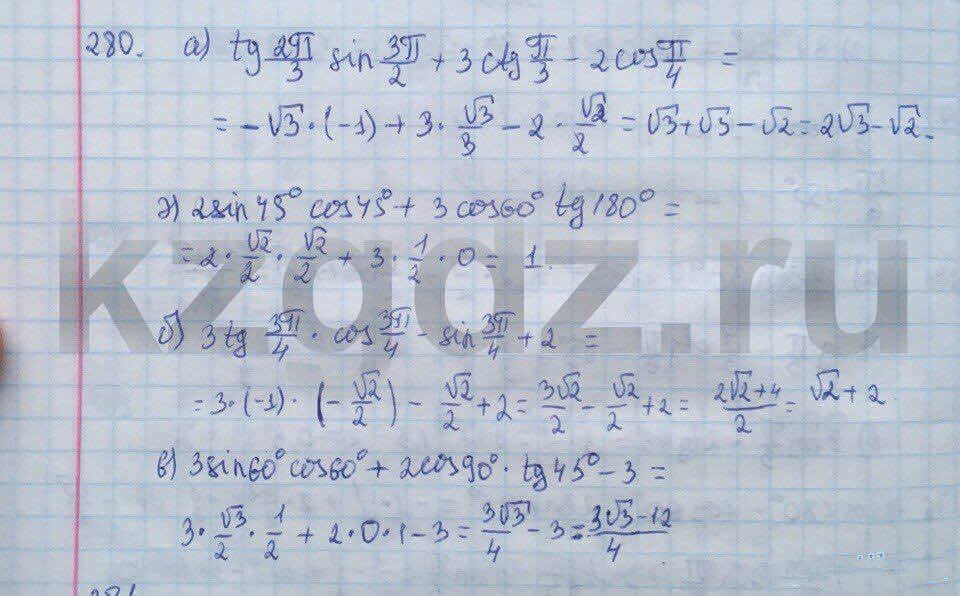 280. а) tg 2π/3 sin 3π/2 + 3 ctg π/3 − 2 cos π/4 =
= −√3 · (−1) + 3 · √3/3 − 2 · √2/2 = √3 + √3 − √2 = 2√3 − √2.
г) 2sin 45° cos 45° + 3 cos 60° tg 180° =
= 2 · √2/2 · √2/2 + 3 · 1/2 · 0 = 1.
kzgdz.ru
б) 3 tg 3π/4 · cos 3π/4 − sin 3π/4 + 2 =
= 3 · (−1) · (−√2/2) − √2/2 + 2 = 3√2/2 − √2/2 + 2 = 2√2+4/2 = √2 + 2
в) 3 sin 60° cos 60° + 2 cos 90° · tg 45° − 3 =
3 · √3/2 · 1/2 + 2 · 0 · 1 − 3 = 3√3/4 − 3 = 3√3−12/4